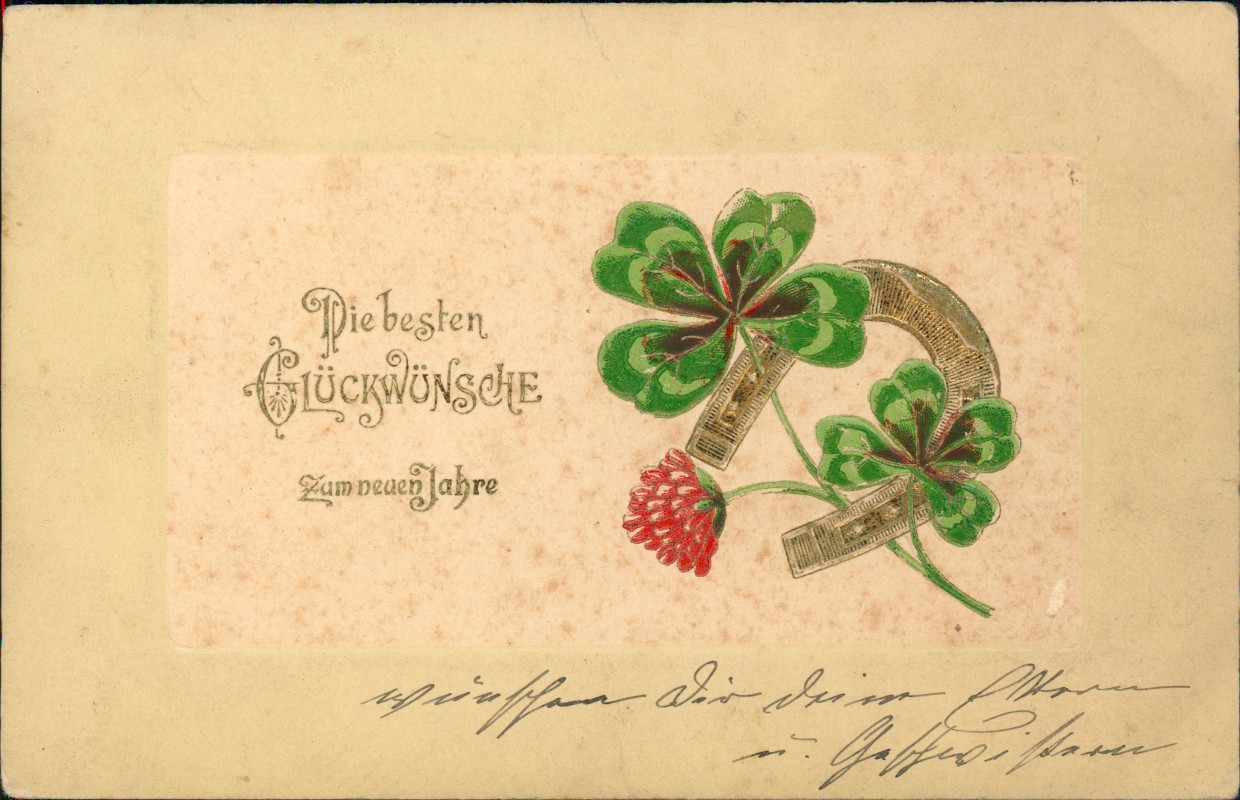 Die besten
GLÜCKWÜNSCHE
Zum neuen Jahre
wünschen Dir deine Eltern
u. Geschwistern